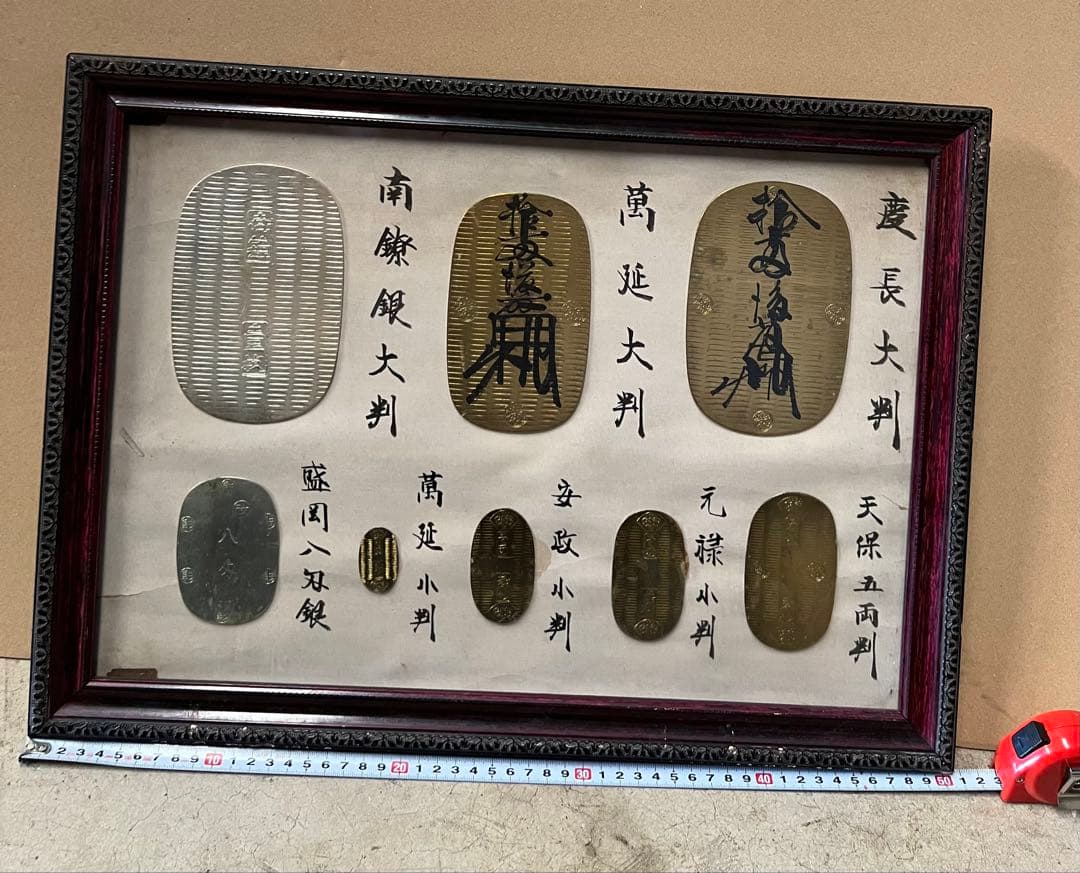 慶長大判
萬延大判
南鐐銀大判
天保五両判
元禄小判
安政小判
萬延小判
盛岡八匁銀
拾両後藤
拾両後藤
八匁
2 3 4 5 6 7 8 9 10 1 2 3 4 5 6 7 8 9 20 1 2 3 4 5 6 7 8 9 30 1 2 3 4 5 6 7 8 9 40 1 2 3 4 5 6 7 8 9 50 1 2 3